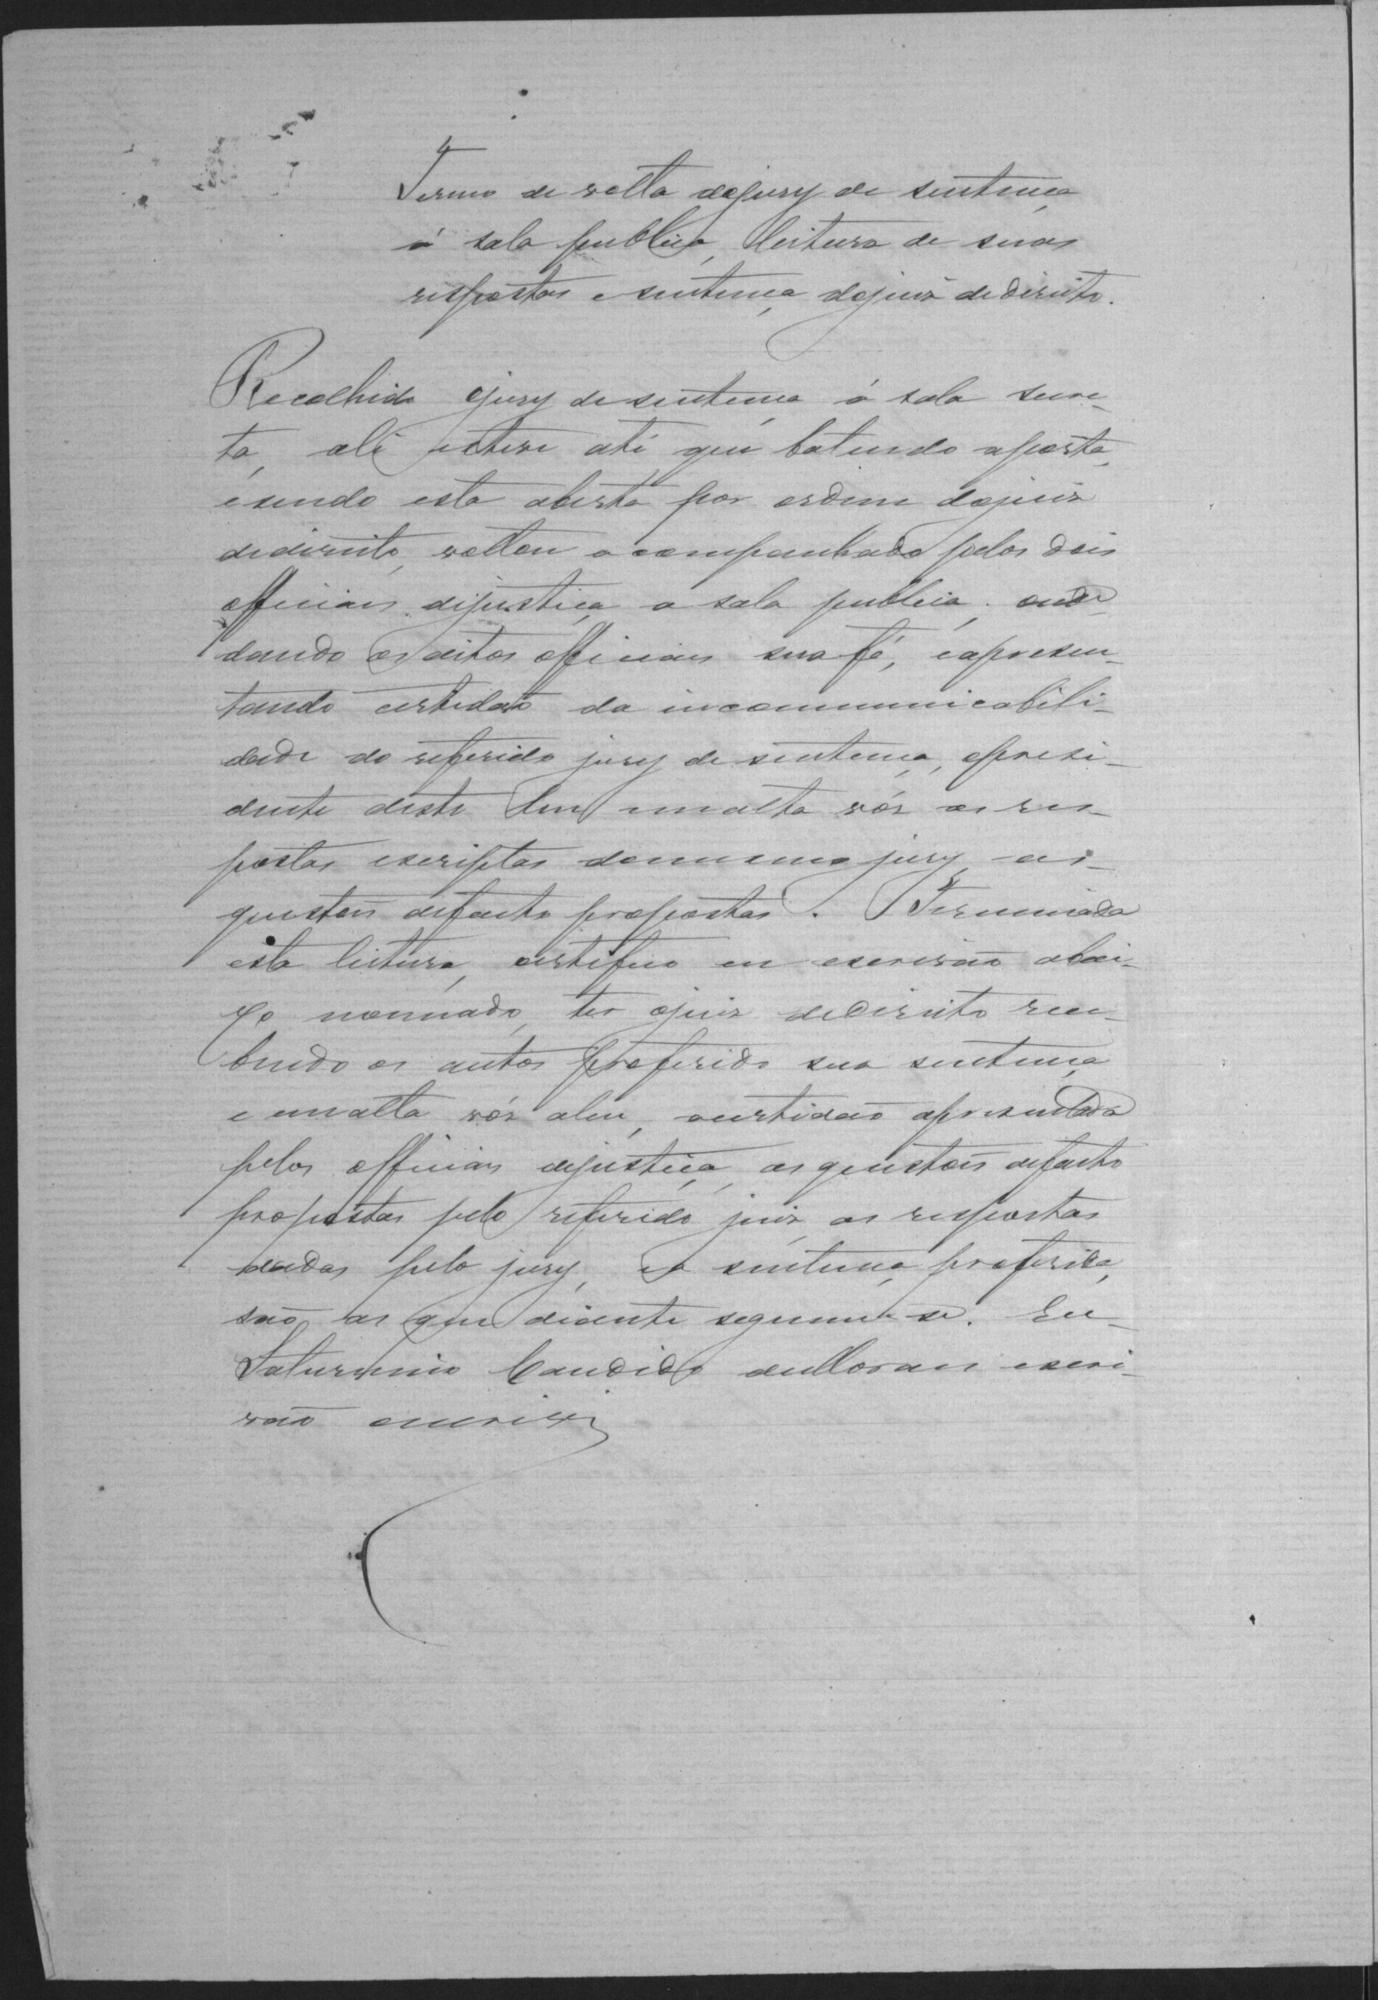 Termo de volta do jury de sentença
á sala publica, leitura de suas
respostas e sentença do juiz de direito.
Recolhido o jury de sentença á sala secre-
ta, ali esteve até que batendo a porta,
e sendo esta aberta por ordem do juiz
de direito, voltou acompanhado pelos dois
officiaes de justiça a sala publica, onde
dando os ditos officiaes sua fé, e apresen-
tando certidão da incommunicabili-
dade do referido jury de sentença, o presi-
dente deste leu em alta vós as res-
postas escriptas do mesmo jury as
questões de facto propostas. Terminada
esta leitura, certifico eu escrivão abai-
xo nomiado, ter o juiz de direito rece-
bendo os autos proferido sua sentença
e em alta vós a leu, a certidão apresentada
pelos officiaes de justiça, as questões de facto
propostas pelo referido juiz, as respostas
dadas pelo jury, e a sentença proferida,
são as que diante seguem-se. Eu
Saturnino Candido de Moraes escri-
vão escrivi